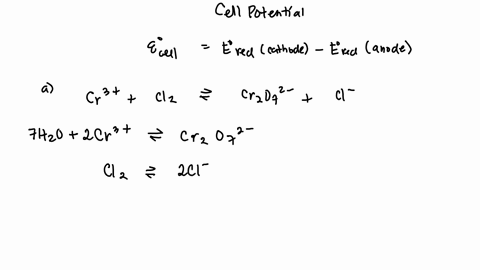 Cell Potential
ε°cell = E°red (cathode) - E°red (anode)
a) Cr³⁺ + Cl₂ ⇌ Cr₂O₇²⁻ + Cl⁻
7H₂O + 2Cr³⁺ ⇌ Cr₂O₇²⁻
Cl₂ ⇌ 2Cl⁻